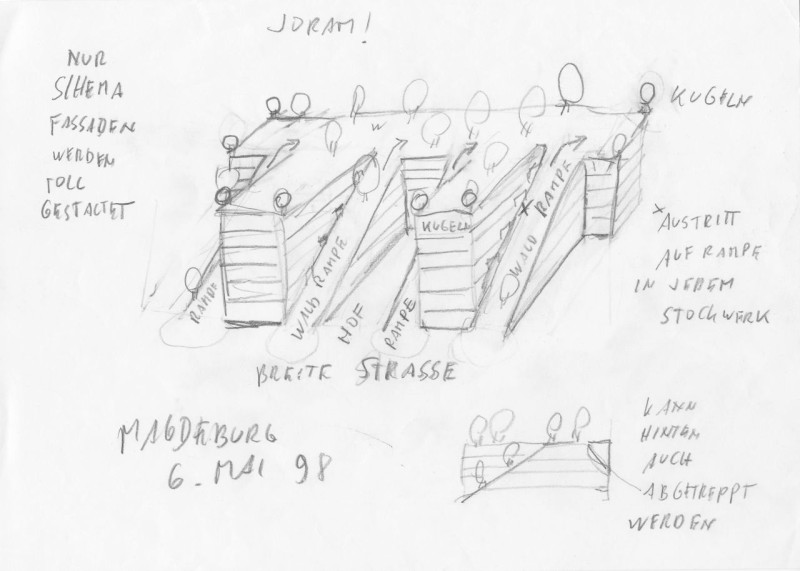 JORAM!
NUR
SCHEMA
FASSADEN
WERDEN
TOLL
GESTALTET
KUGELN
W
KUGELN
RAMPE
WALD RAMPE
HOF
RAMPE
WALD RAMPE
x AUSTRITT
AUF RAMPE
IN JEDEM
STOCKWERK
BREITE STRASSE
MAGDEBURG
6. MAI 98
KANN
HINTEN
AUCH
ABGETREPPT
WERDEN